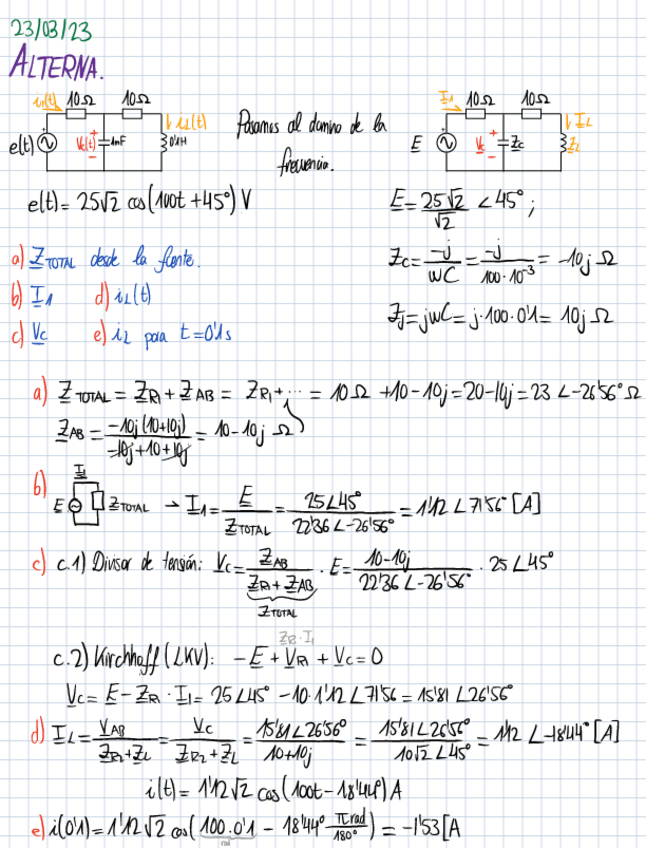 23/03/23
ALTERNA.
i1(t) 10Ω 10Ω
iL(t)
e(t) Vc(t) + - 1mF 0'1H
Pasamos al domino de la
frecuencia.
I1 10Ω 10Ω
IL
E Vc + - Zc ZL
e(t) = 25√2 cos(100t + 45°) V
E = 25√2/√2 ∠45° ;
Zc = -j/WC = -j/100·10⁻³ = -10j Ω
Zj = jWC = j·100·0'1 = 10j Ω
a) Z TOTAL desde la fuente.
b) I1 d) iL(t)
c) Vc e) iL para t=0'1s
a) Z TOTAL = ZR1 + ZAB = ZR1 + ... = 10Ω + 10 - 10j = 20 - 10j = 23 ∠-26'56° Ω
ZAB = -10j(10+10j)/-10j+10+10j = 10 - 10j Ω
b) I1
E Z TOTAL → I1 = E/Z TOTAL = 25∠45°/22'36 ∠-26'56° = 1'12 ∠71'56° [A]
c) c.1) Divisor de tensión: Vc = ZAB/ZR1 + ZAB · E = 10-10j/22'36 ∠-26'56° · 25∠45°
Z TOTAL
ZR·I1
c.2) Kirchhoff (LKV): -E + VR1 + Vc = 0
Vc = E - ZR1 · I1 = 25∠45° - 10·1'12 ∠71'56 = 15'81 ∠26'56°
d) IL = VAB/ZR2+ZL = Vc/ZR2+ZL = 15'81∠26'56°/10+10j = 15'81∠26'56°/10√2 ∠45° = 1'12 ∠-18'44° [A]
i(t) = 1'12√2 cos(100t - 18'44°) A
e) i(0'1) = 1'12√2 cos(100·0'1 - 18'44° π rad/180°) = -1'53[A
rad